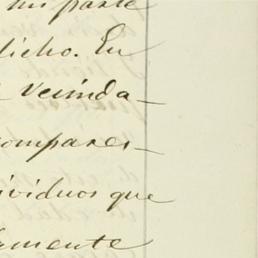 mi parte
dicho. En
vecinda-
compares-
ividuos que
amente